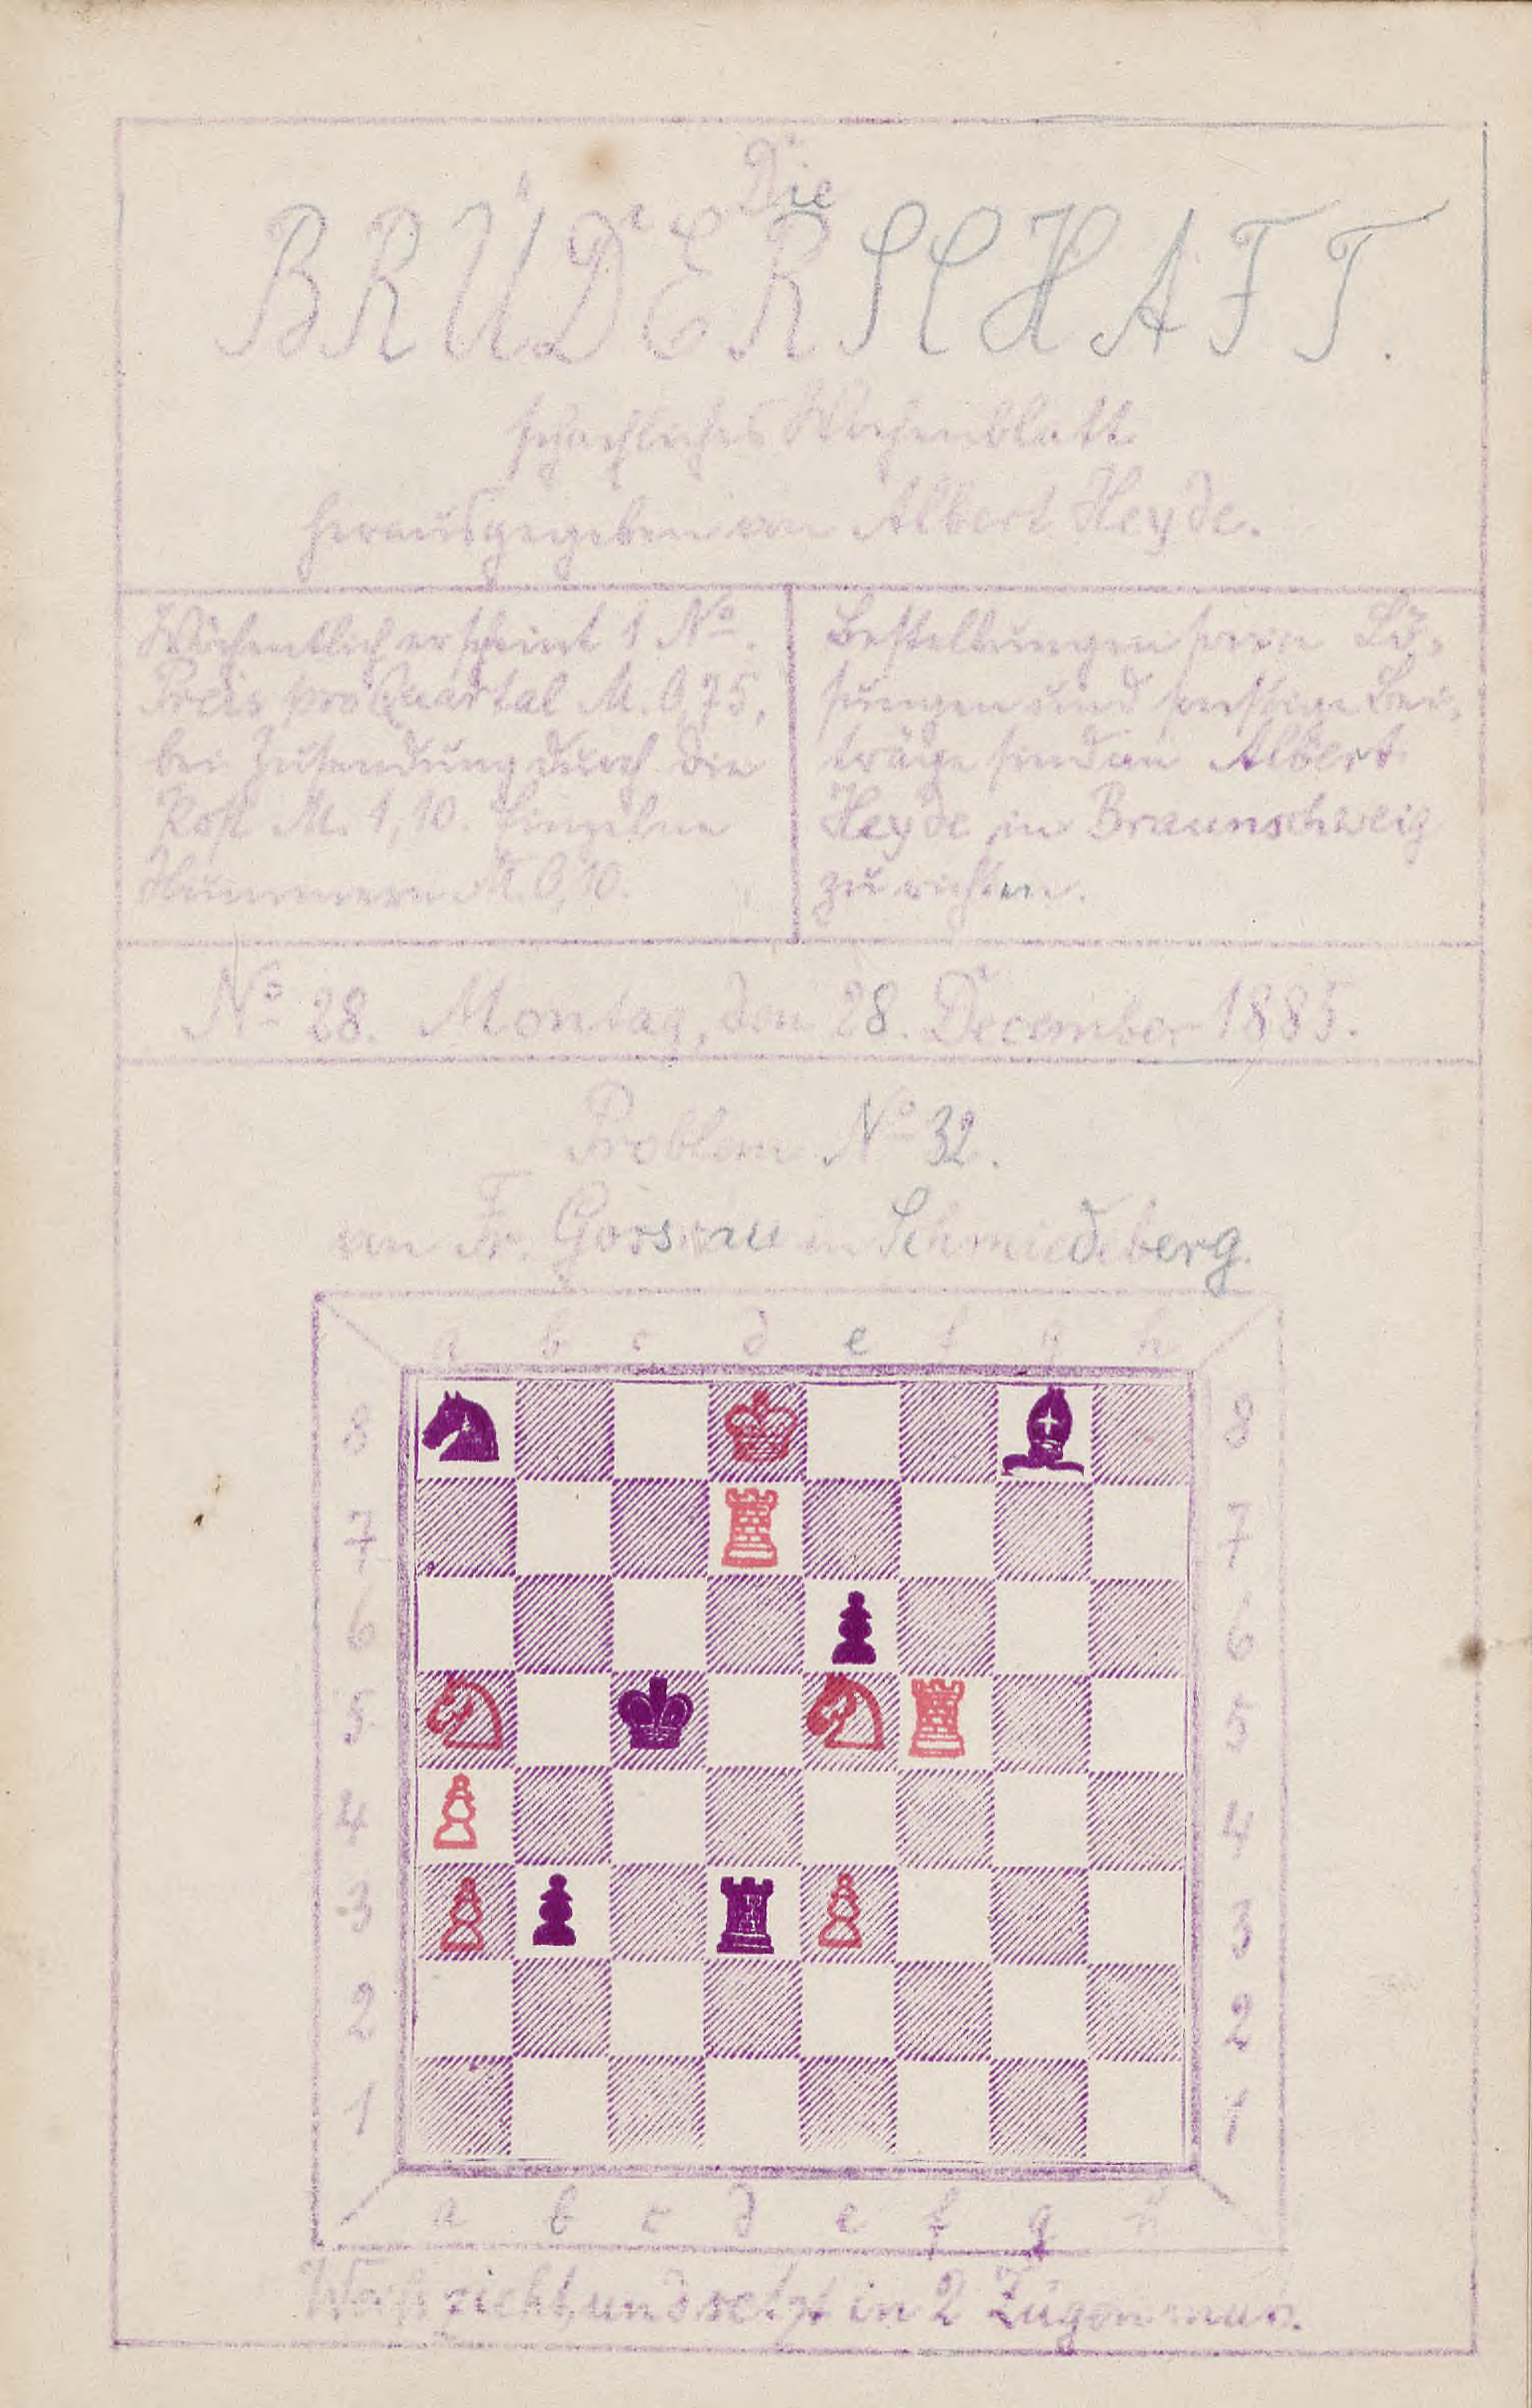 Die
BRÜDERSCHAFT.
schachliches Wochenblatt
herausgegeben von Albert Heyde.
Wöchentlich erscheint 1 No.
Preis pro Quartal M. 0,75,
bei Zusendung durch die
Post M. 1,10. Einzelne
Nummern M. 0,10.
Bestellungen sowie Lö-
sungen und sonstige Bei-
träge sind an Albert
Heyde in Braunschweig
zu richten.
No 28. Montag, den 28. December 1885.
Problem No 32.
von Fr. in Schmiedeberg.
a b c d e f g h
8 8
7 7
6 6
5 5
4 4
3 3
2 2
1 1
a b c d e f g h
Weiß zieht und setzt in 2 Zügen matt.